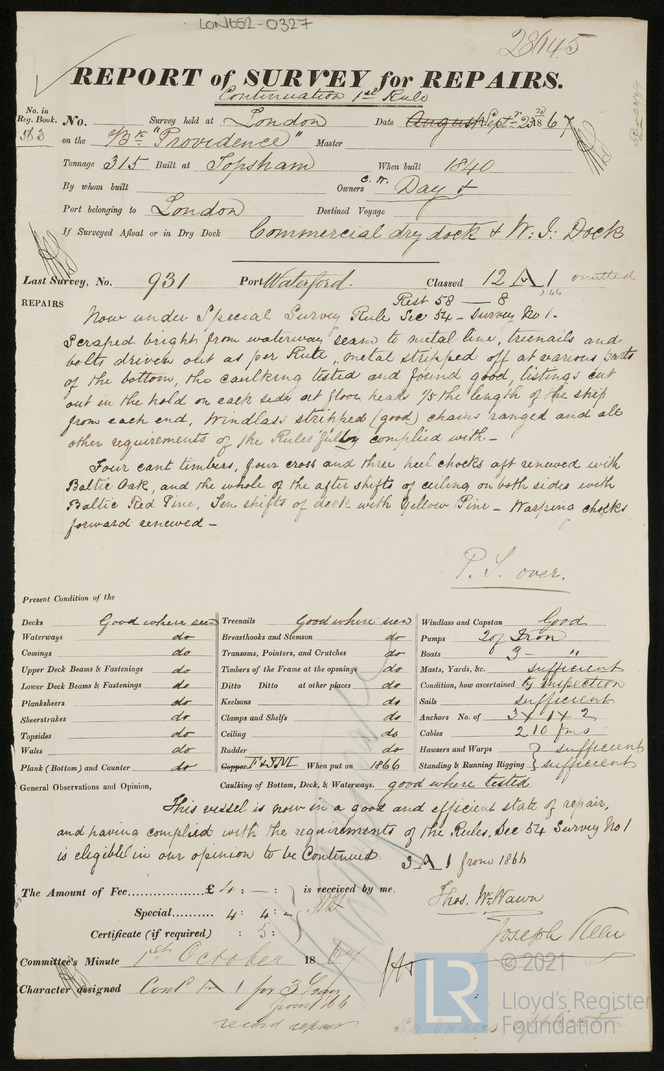 LON652-0327
REPORT of SURVEY for REPAIRS.
Continuation 1st Rule
No. in Reg. Book.
No. Survey held at London Date August Sept 23rd 1867
on the Bk "Providence" Master
Tonnage 315 Built at Topsham When built 1840
By whom built Owners C. W. Day &
Port belonging to London Destined Voyage
If Surveyed Afloat or in Dry Dock Commercial dry dock & W. I. Dock
Last Survey, No. 931 Port Waterford. Classed 12 A 1 omitted
Rest 58 — 8
REPAIRS
Now under Special Survey Rule Sec 54 - Survey No 1.
Scraped bright from waterway seam to metal line, treenails and
bolts driven out as per Rule, metal stripped off at various parts
of the bottom, the caulking tested and found good, listings cut
out in the hold on each side at floor heads 1/5 the length of the ship
from each end, Windlass stripped (good) chains ranged and all
other requirements of the Rules fully complied with -
Four cant timbers, four cross and three heel chocks aft renewed with
Baltic Oak, and the whole of the after shifts of ceiling on both sides with
Baltic Red Pine, Ten shifts of deck with Yellow Pine - Warping chocks
forward renewed -
P.S. over.
Present Condition of the
Decks Good where seen Treenails Good where seen Windlass and Capstan Good
Waterways do Breasthooks and Stemson do Pumps 2 of Iron
Comings do Transons, Pointers, and Crutches do Boats 3 - "
Upper Deck Beams & Fastenings do Timbers of the Frame at the openings do Masts, Yards, &c. sufficient
Lower Deck Beams & Fastenings do Ditto Ditto at other places do Condition, how ascertained by inspection
Planksheers do Keelsons do Sails sufficient
Sheerstrakes do Clamps and Shelfs do Anchors No. of 3 X 1 X 2
Topsides do Ceiling do Cables 210 fms
Wales do Rudder do Hawsers and Warps sufficient
Plank (Bottom) and Counter do Copper F&YM When put on 1866 Standing & Running Rigging sufficient
General Observations and Opinion, Caulking of Bottom, Deck, & Waterways. good where tested
This vessel is now in a good and efficient state of repair,
and having complied with the requirements of the Rules, Sec 54 Survey No 1
is eligible in our opinion to be Continued 3 A 1 from 1866
The Amount of Fee £ 4 : - : is received by me,
Special 4 : 4 : -
Certificate (if required) : 5 :
Joseph
Committee's Minute 1st October 18
Character assigned Cont A 1 for 3 Years
from 66
record repair
LR
© 2021
Lloyd's Register
Foundation